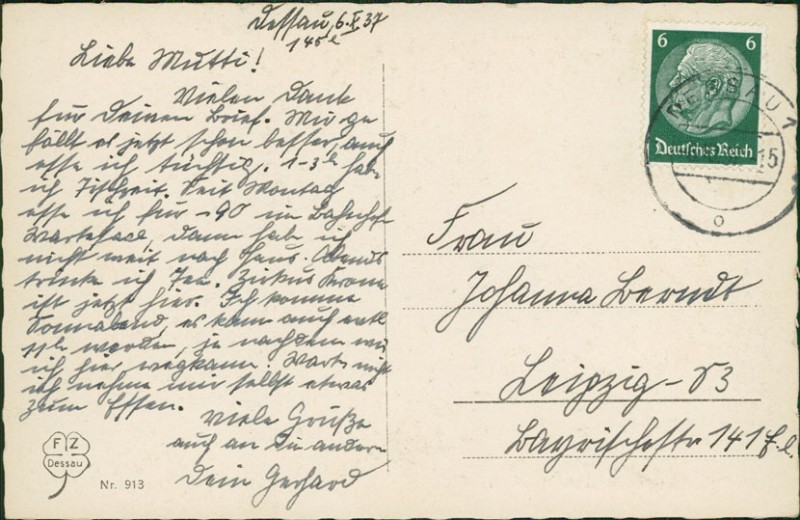 Dessau, 6.X.37
145 e
Liebe Mutti!
Vielen Dank
für Deinen Brief. Mir ge
fällt es jetzt schon besser, auch
esse ich tüchtig. 1-3 h habe
ich Tischzeit. Seit Montag
esse ich für -90 im Bahnhofs
Wartesaal, dann hab ich
nicht weit nach Haus. Abends
trinke ich Tee. Zirkus Krone
ist jetzt hier. Ich komme
Sonnabend, es kann auch evtl
11h werden, je nachdem wie
ich hier wegkann. Warte nicht
ich nehme mir selbst etwas
zum Essen.
Viele Grüße
auch an die andern
Dein Gerhard
F Z
Dessau
Nr. 913
6 6
Deutsches Reich
DESSAU 1
15
o
Frau
Johanna Berndt
Leipzig-S3
Bayrischestr 141